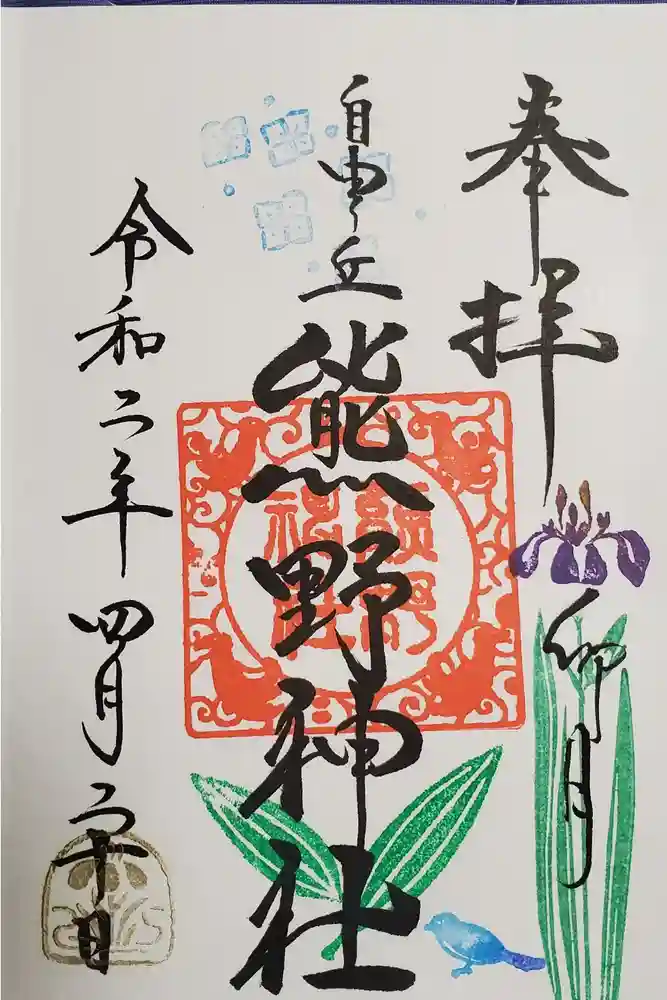 奉拝
卯月
自由ヶ丘
熊野神社
令和二年四月二十日